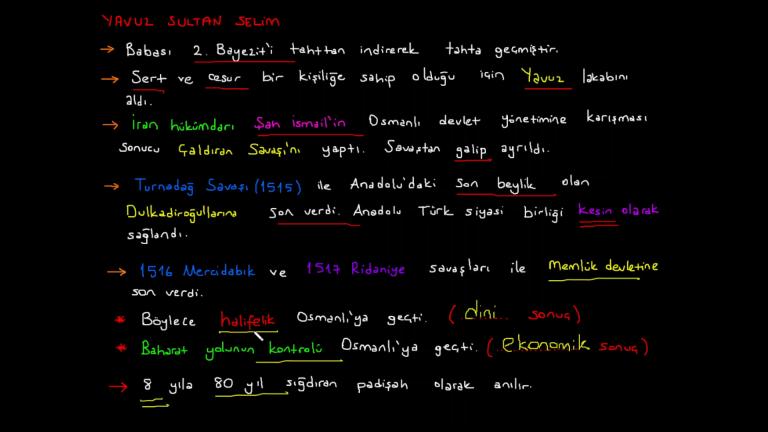 YAVUZ SULTAN SELİM
→ Babası 2. Bayezit'i tahttan indirerek tahta geçmiştir.
→ Sert ve cesur bir kişiliğe sahip olduğu için Yavuz lakabını
aldı.
→ İran hükümdarı Şah İsmail'in Osmanlı devlet yönetimine karışması
sonucu Çaldıran Savaşı'nı yaptı. Savaştan galip ayrıldı.
→ Turnadağ Savaşı (1515) ile Anadolu'daki son beylik olan
Dulkadiroğullarına son verdi. Anadolu Türk siyasi birliği kesin olarak
sağlandı.
→ 1516 Mercidabık ve 1517 Ridaniye savaşları ile Memlük devletine
son verdi.
* Böylece halifelik Osmanlı'ya geçti. (dini sonuç)
* Baharat yolunun kontrolü Osmanlı'ya geçti. (ekonomik sonuç)
→ 8 yıla 80 yıl sığdıran padişah olarak anılır.